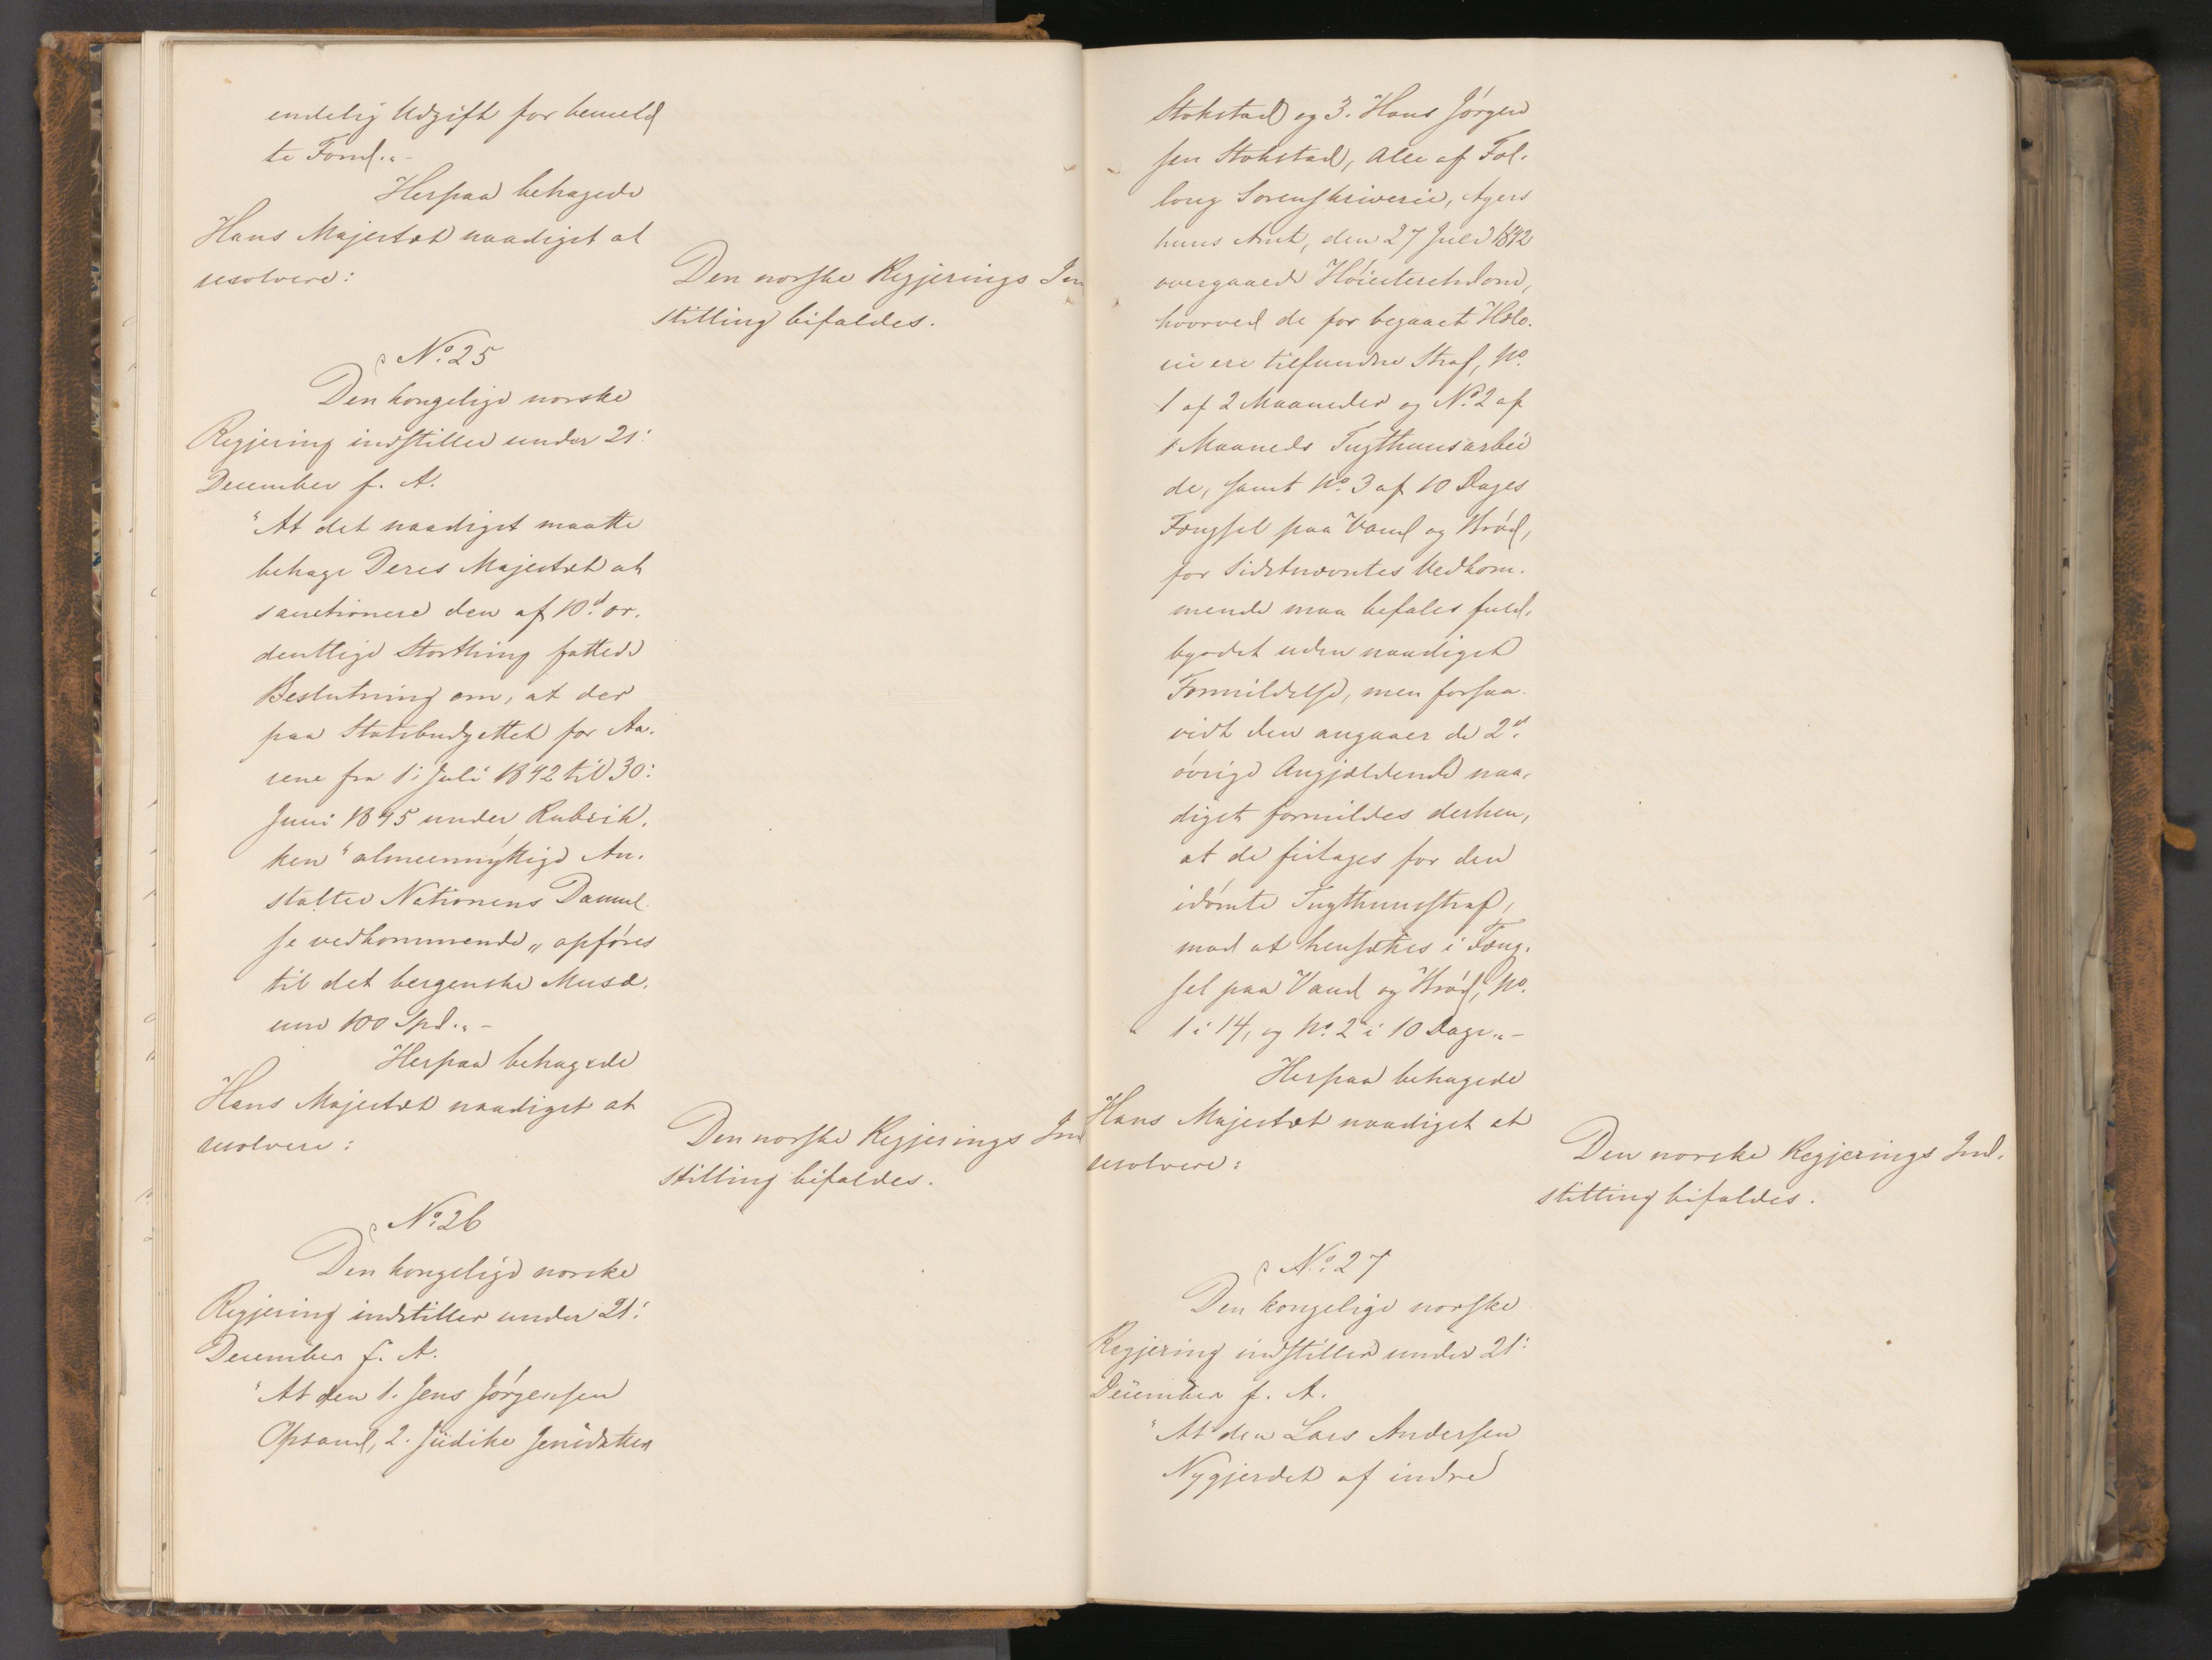 endelig Udgift for bemeld
te Fond."-
Herpaa behagede
Hans Majestæt naadigst at
resolvere:
Den norske Regjerings In
stilling bifaldes.
No. 25
Den kongelige norske
Regjering indstiller under 21:
December f. A.
"At det naadigst maatte
behage Deres Majestæt at
sanctionere den af 10d. or-
denttlige Storthing fattede
Beslutning om, at der
paa Statsbudgettet for Aa-
rene fra 1: Juli 1842 til 30:
Juni 1845 under Rubrik-
ken "almeennyttige An-
stalter Nationens Dannel-
se vedkommende" opføres
til det bergenske Musæ-
um 100 Spd."-
Herpaa behagede
Hans Majestæt naadigst at
resolvere:
Den norske Regjerings Ind
stilling bifaldes.
No. 26
Den kongelige norske
Regjering indstiller under 21:
December f. A.
"At den 1. Jens Jørgensen
Opsand, 2. Jüdike Jensdatter
Stokstad og 3. Hans Jørgen
sen Stokstad, Alle af Fol-
loug Sorenskriverie, Agers
huus Amt, den 27 Juli 1842
overgaaede Høiesteretsdom,
hvorved de for begaaet Hæle-
rie ere tilfundne Straf, No.
1 af 2 Maaneder og No. 2 af
1 Maaneds Tugthuusarbei
de, samt No. 3 af 10 Dages
Fængsel paa Vand og Brød,
for Sidstnævntes Vedkom-
mende maa befales fuld-
byrdet uden naadigst
Formildelse, men forsaa-
vidt den angaaer de 2de
øvrige Angjældende naa-
digst formildes derhen,
at de fritages for den
idømte Tugthuusstraf,
mod at hensættes i Fæng-
sel paa Vand og Brød, No.
1 i 14, og No. 2 i 10 Dage."-
Herpaa behagede
Hans Majestæt naadigst at
resolvere:
Den norske Regjerings Ind-
stilling bifaldes.
No. 27
Den kongelige norske
Regjering indstiller under 21:
December f. A.
"At den Lars Andersen
Nygjerdet af indre